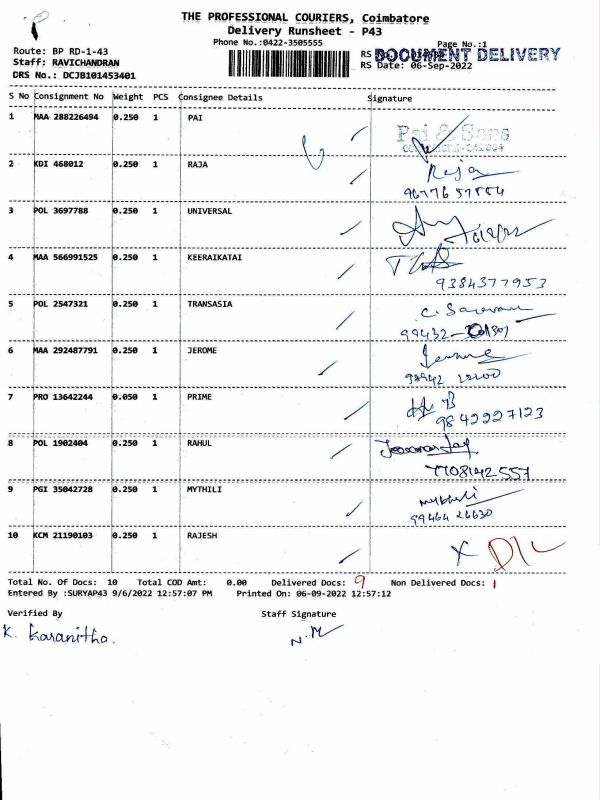 THE PROFESSIONAL COURIERS, Coimbatore
Delivery Runsheet - P43
Phone No.:0422-3505555
Page No.:1
Route: BP RD-1-43
Staff: RAVICHANDRAN
DRS No.: DCJB101453401
DOCUMENT DELIVERY
RS Date: 06-Sep-2022
S No Consignment No Weight PCS Consignee Details Signature
1 MAA 288226494 0.250 1 PAI
Pai & Sons
2 KDI 468012 0.250 1 RAJA
Raja
3 POL 3697788 0.250 1 UNIVERSAL
4 MAA 566991525 0.250 1 KEERAIKATAI
9384377953
5 POL 2547321 0.250 1 TRANSASIA
6 MAA 292487791 0.250 1 JEROME
Jerome
7 PRO 13642244 0.050 1 PRIME
9842227123
8 POL 1902404 0.250 1 RAHUL
7708142557
9 PGI 35042728 0.250 1 MYTHILI
mythili
99464 26630
10 KCM 21190103 0.250 1 RAJESH
X D/L
Total No. Of Docs: 10 Total COD Amt: 0.00 Delivered Docs: 9 Non Delivered Docs: 1
Entered By :SURYAP43 9/6/2022 12:57:07 PM Printed On: 06-09-2022 12:57:12
Verified By Staff Signature
K. Karanitha. N.M